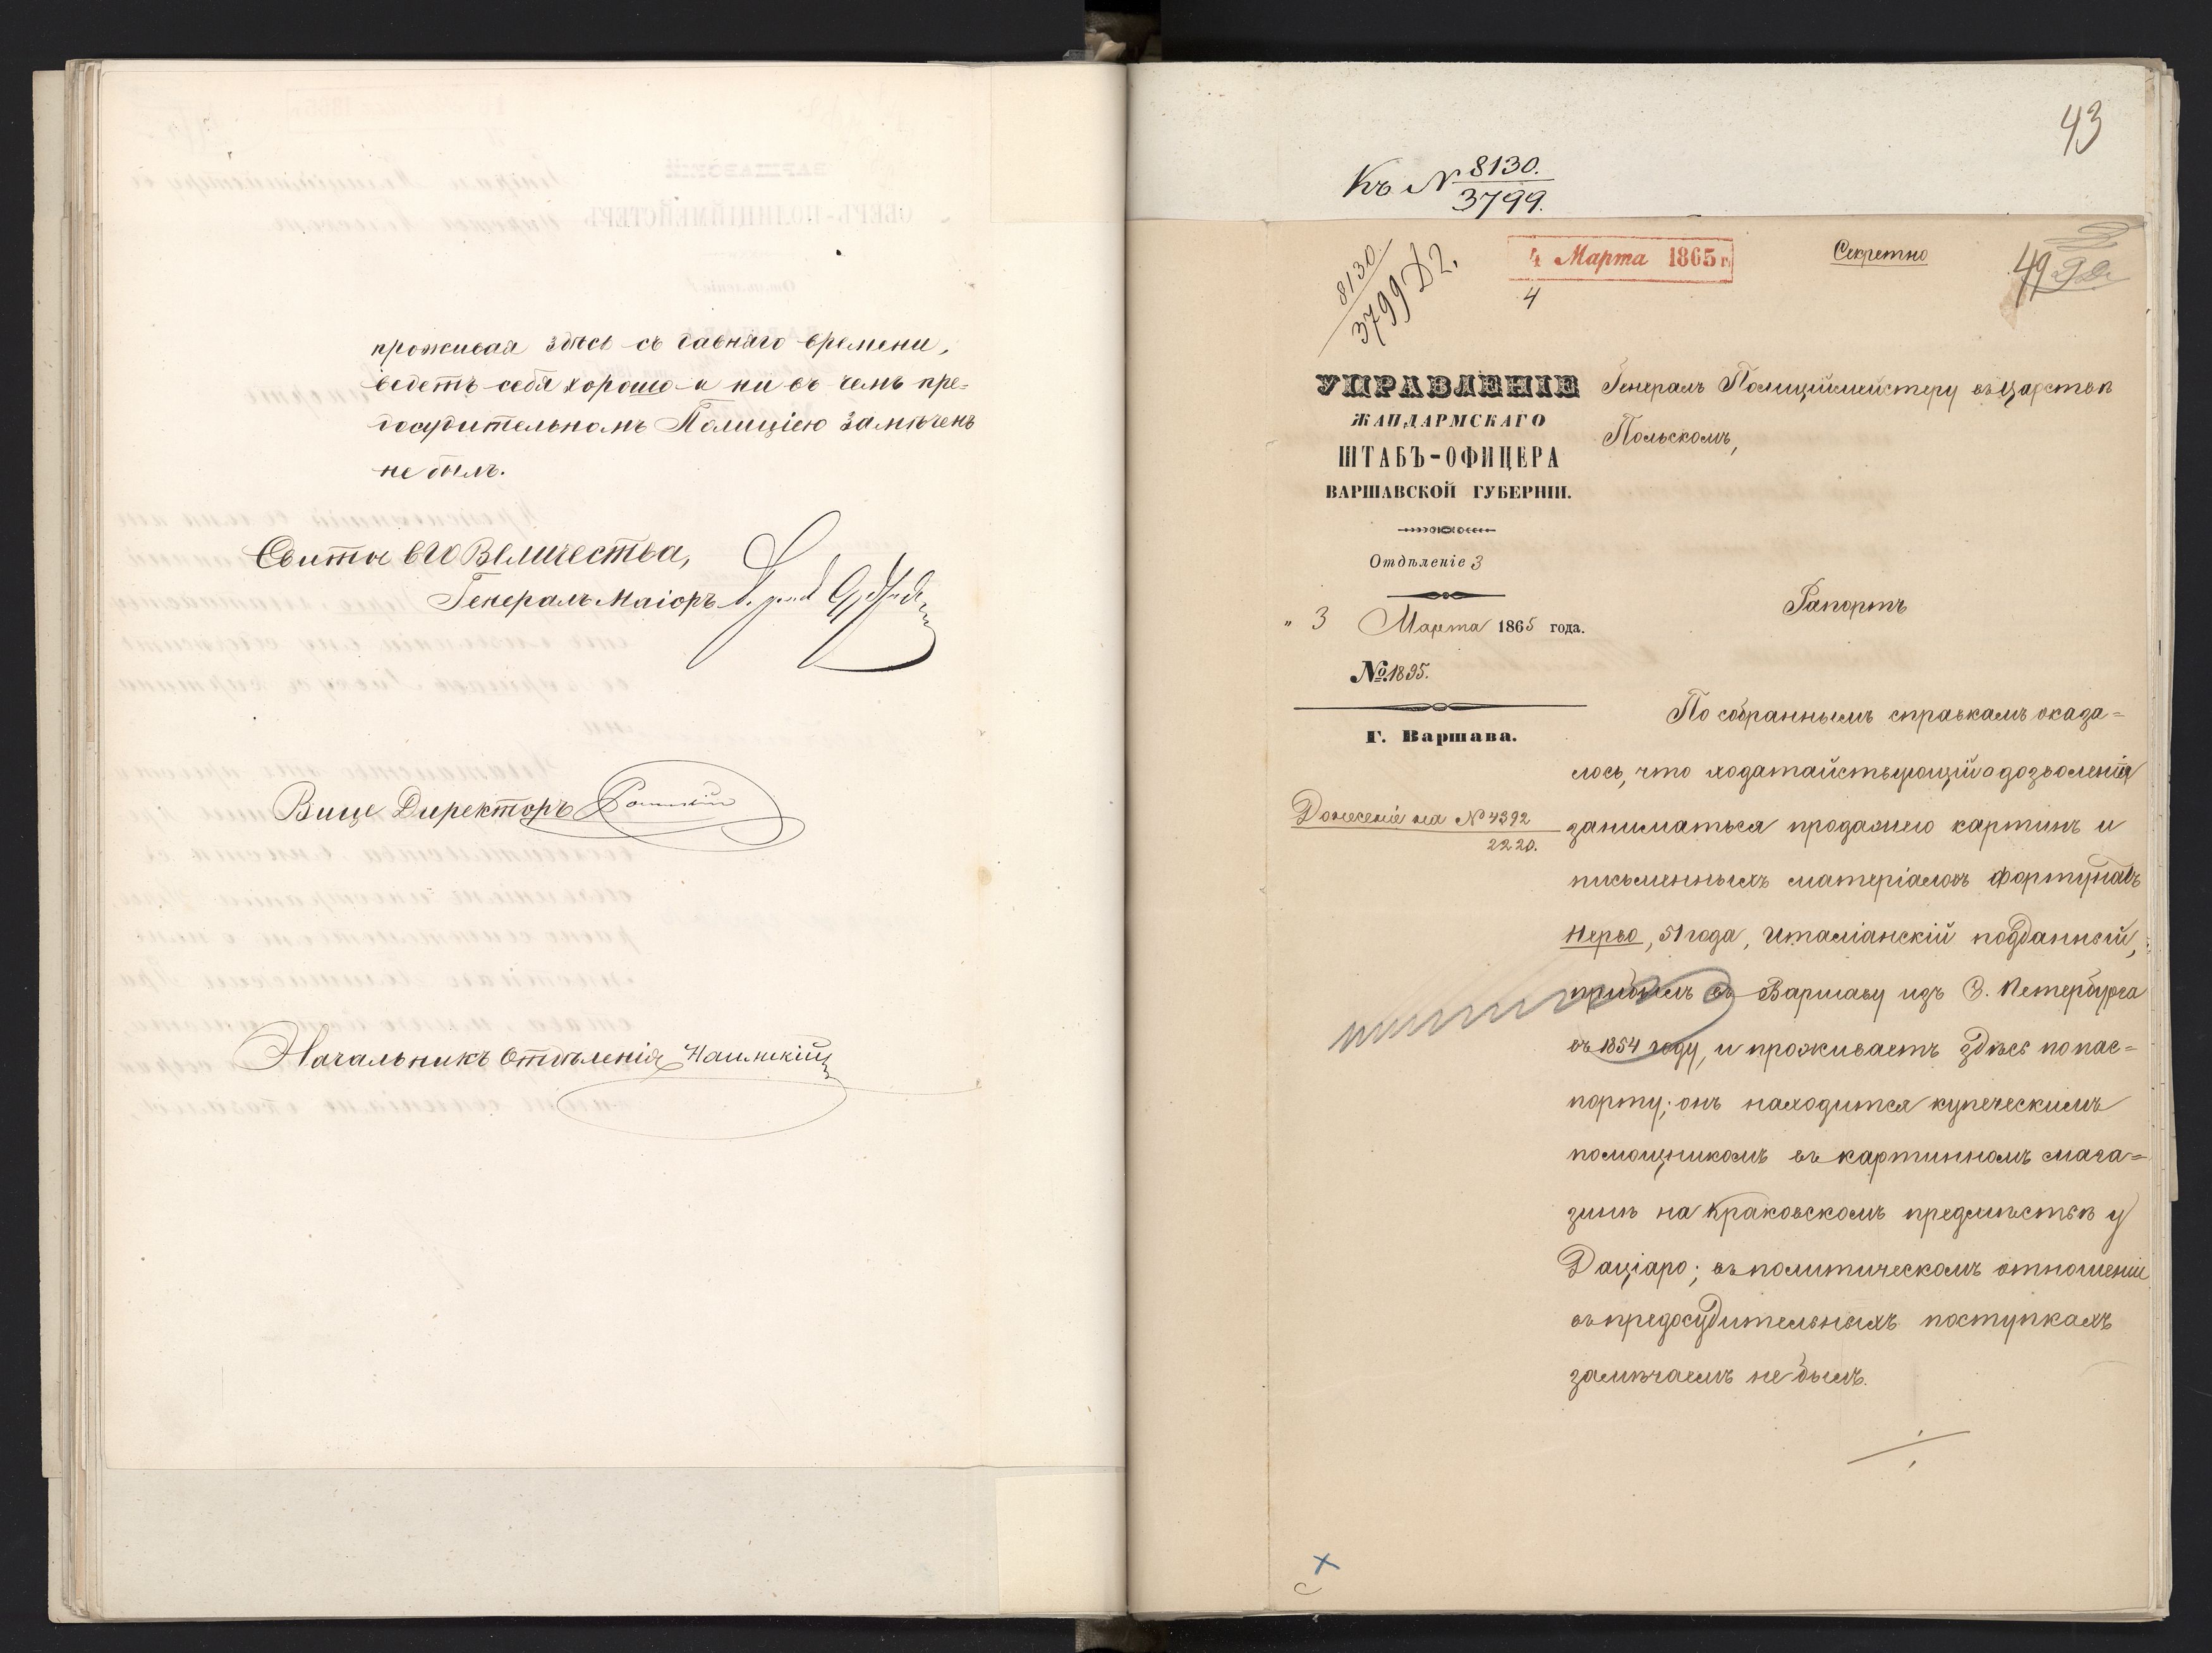 проживая здѣсь съ давняго времени,
ведетъ себя хорошо и ни въ чемъ пре-
досудительномъ Полиціею замѣченъ
не былъ.
Свиты ЕГО ВЕЛИЧЕСТВА,
Генералъ Маіоръ
Вице Директоръ
Начальникъ Отдѣленія
43
Къ № 8130.
3799.
8130
3799 Д2.
4 Марта 1865 г.
4
Секретно
49
УПРАВЛЕНІЕ
ЖАНДАРМСКАГО
ШТАБЪ-ОФИЦЕРА
ВАРШАВСКОЙ ГУБЕРНІИ.
Отдѣленіе 3
" 3 Марта 1865 года.
№ 1895.
Г. Варшава.
Донесеніе на № 4392
2220.
Генералъ Полицiймейстеру въ Царствѣ
Польскомъ,
Рапортъ
По собраннымъ справкамъ оказа=
лось, что ходатайствующій о дозволеніи
заниматься продажею картинъ и
письменныхъ матеріаловъ Фортунатъ
Нерво, 51 года, Италіанскій подданный,
прибылъ въ Варшаву изъ С. Петербурга
въ 1854 году, и проживаетъ здѣсь по пас=
порту; онъ находится купеческимъ
помощникомъ въ картинномъ мага=
зинѣ на Краковскомъ предмѣстьѣ у
Даціаро; въ политическомъ отношеніи
въ предосудительныхъ поступкахъ
замѣчаемъ не былъ.